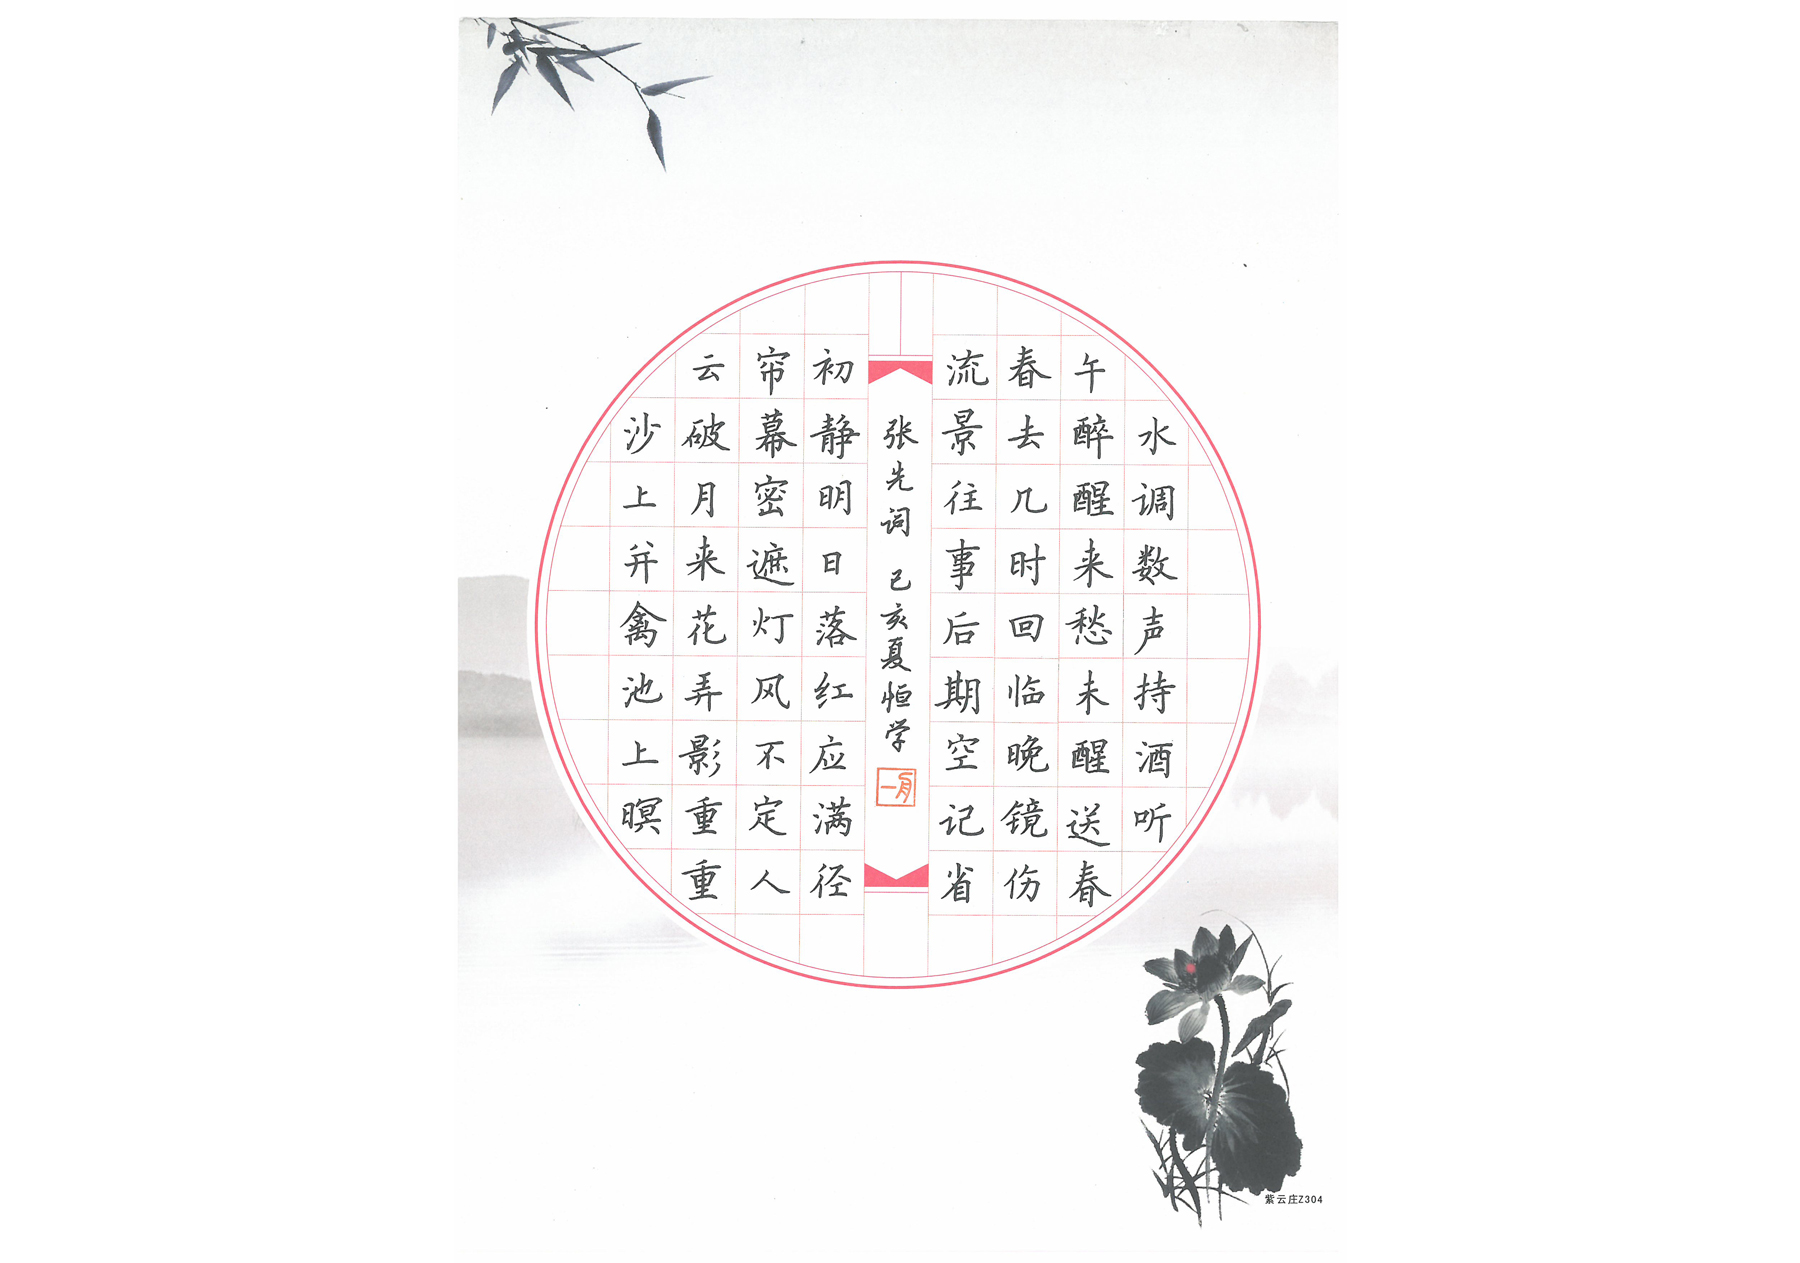 水调数声持酒听
午醉醒来愁未醒送春
春去几时回临晚镜伤
流景往事后期空记省
沙上并禽池上暝
云破月来花弄影重重
帘幕密遮灯风不定人
初静明日落红应满径
张先词 己亥夏恒学
紫云庄Z304